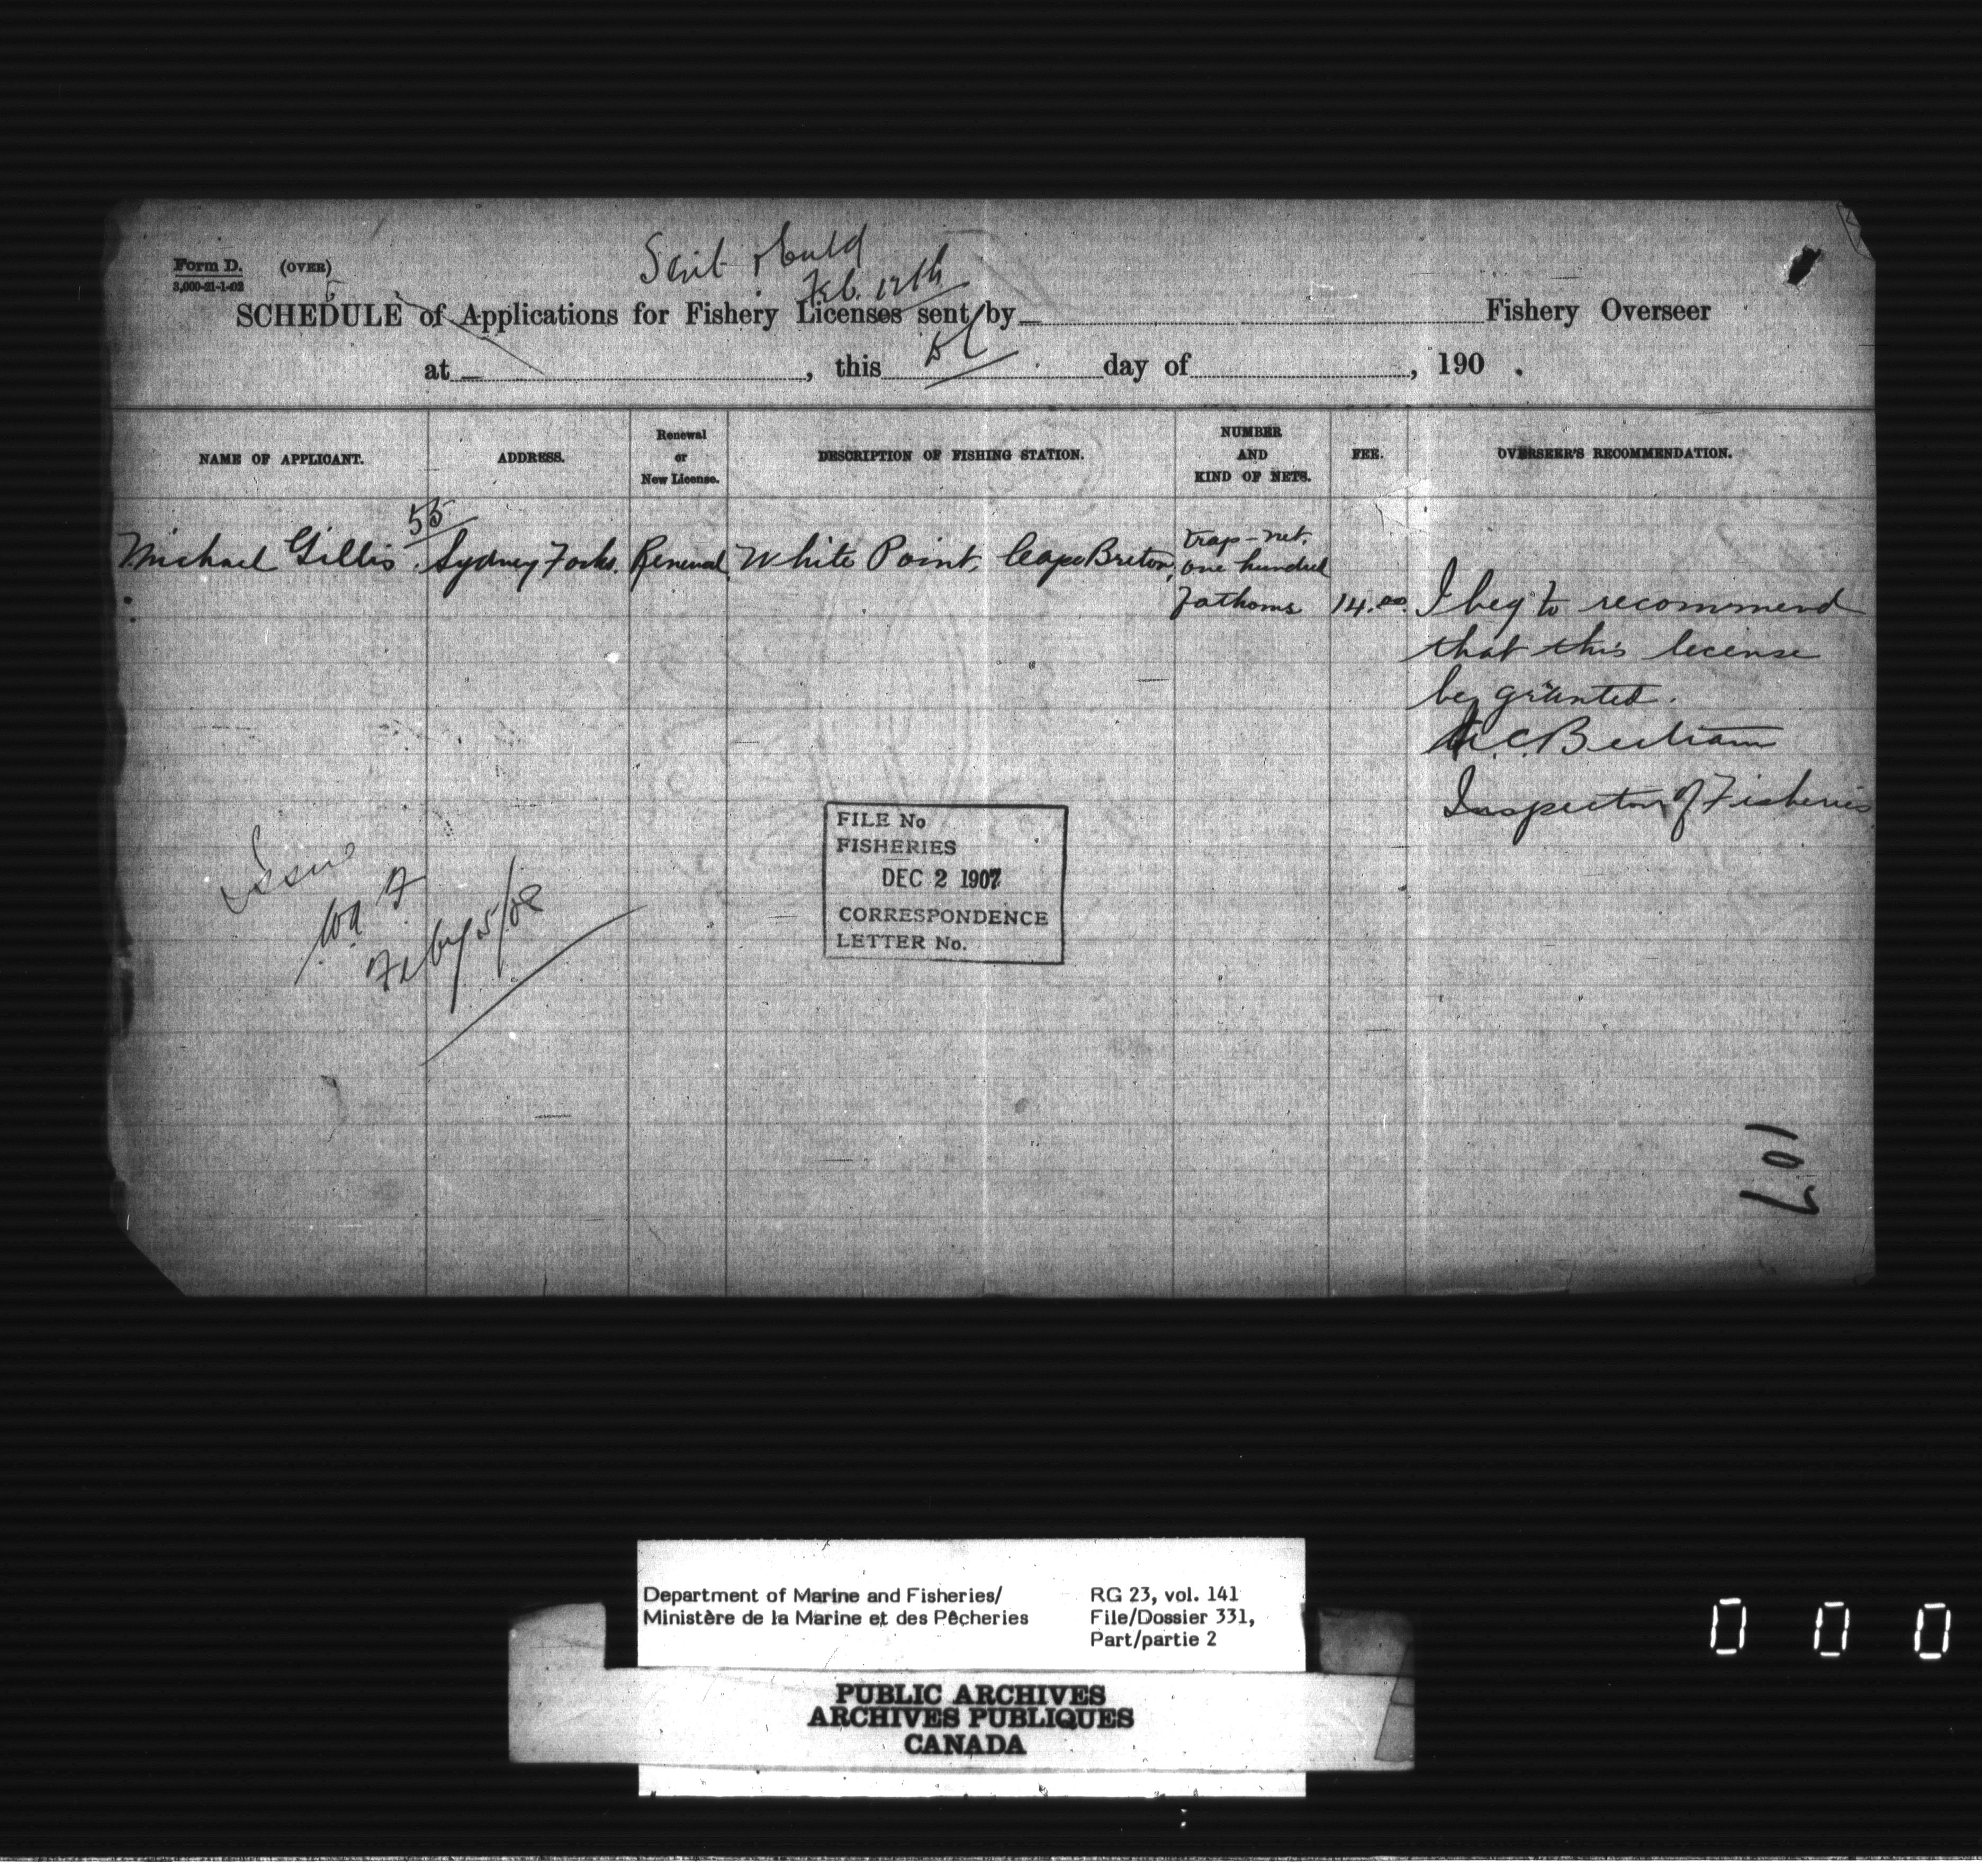 Form D. (OVER)
3,000-21-1-02
Feb. 12th
SCHEDULE of Applications for Fishery Licenses sent by Fishery Overseer
at , this day of , 190 .
NAME OF APPLICANT. ADDRESS. Renewal or New License. DESCRIPTION OF FISHING STATION. NUMBER AND KIND OF NETS. FEE. OVERSEER'S RECOMMENDATION.
53
Michael Gillis. Sydney Forks. Renewal, White Point, Cape Breton,
trap-net.
one hundred
fathoms 14.00.
I beg to recommend
that this license
be granted.
A.C. Bertram
Inspector of Fisheries
FILE No
FISHERIES
DEC 2 1907
CORRESPONDENCE
LETTER No.
Issue
Feby 5/08
107
Department of Marine and Fisheries/
Ministère de la Marine et des Pêcheries
RG 23, vol. 141
File/Dossier 331,
Part/partie 2
PUBLIC ARCHIVES
ARCHIVES PUBLIQUES
CANADA
0 0 0